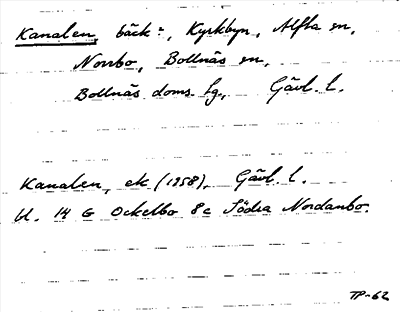 Kanalen, bäck?, Kyrkbyn, Alfta sn,
Norrbo, Bollnäs sn,
Bollnäs doms. fg., Gävl. l.
Kanalen, ek (1958), Gävl. l.
bl. 14 G Ockelbo 8c Södra Nordanbo.
TP-62